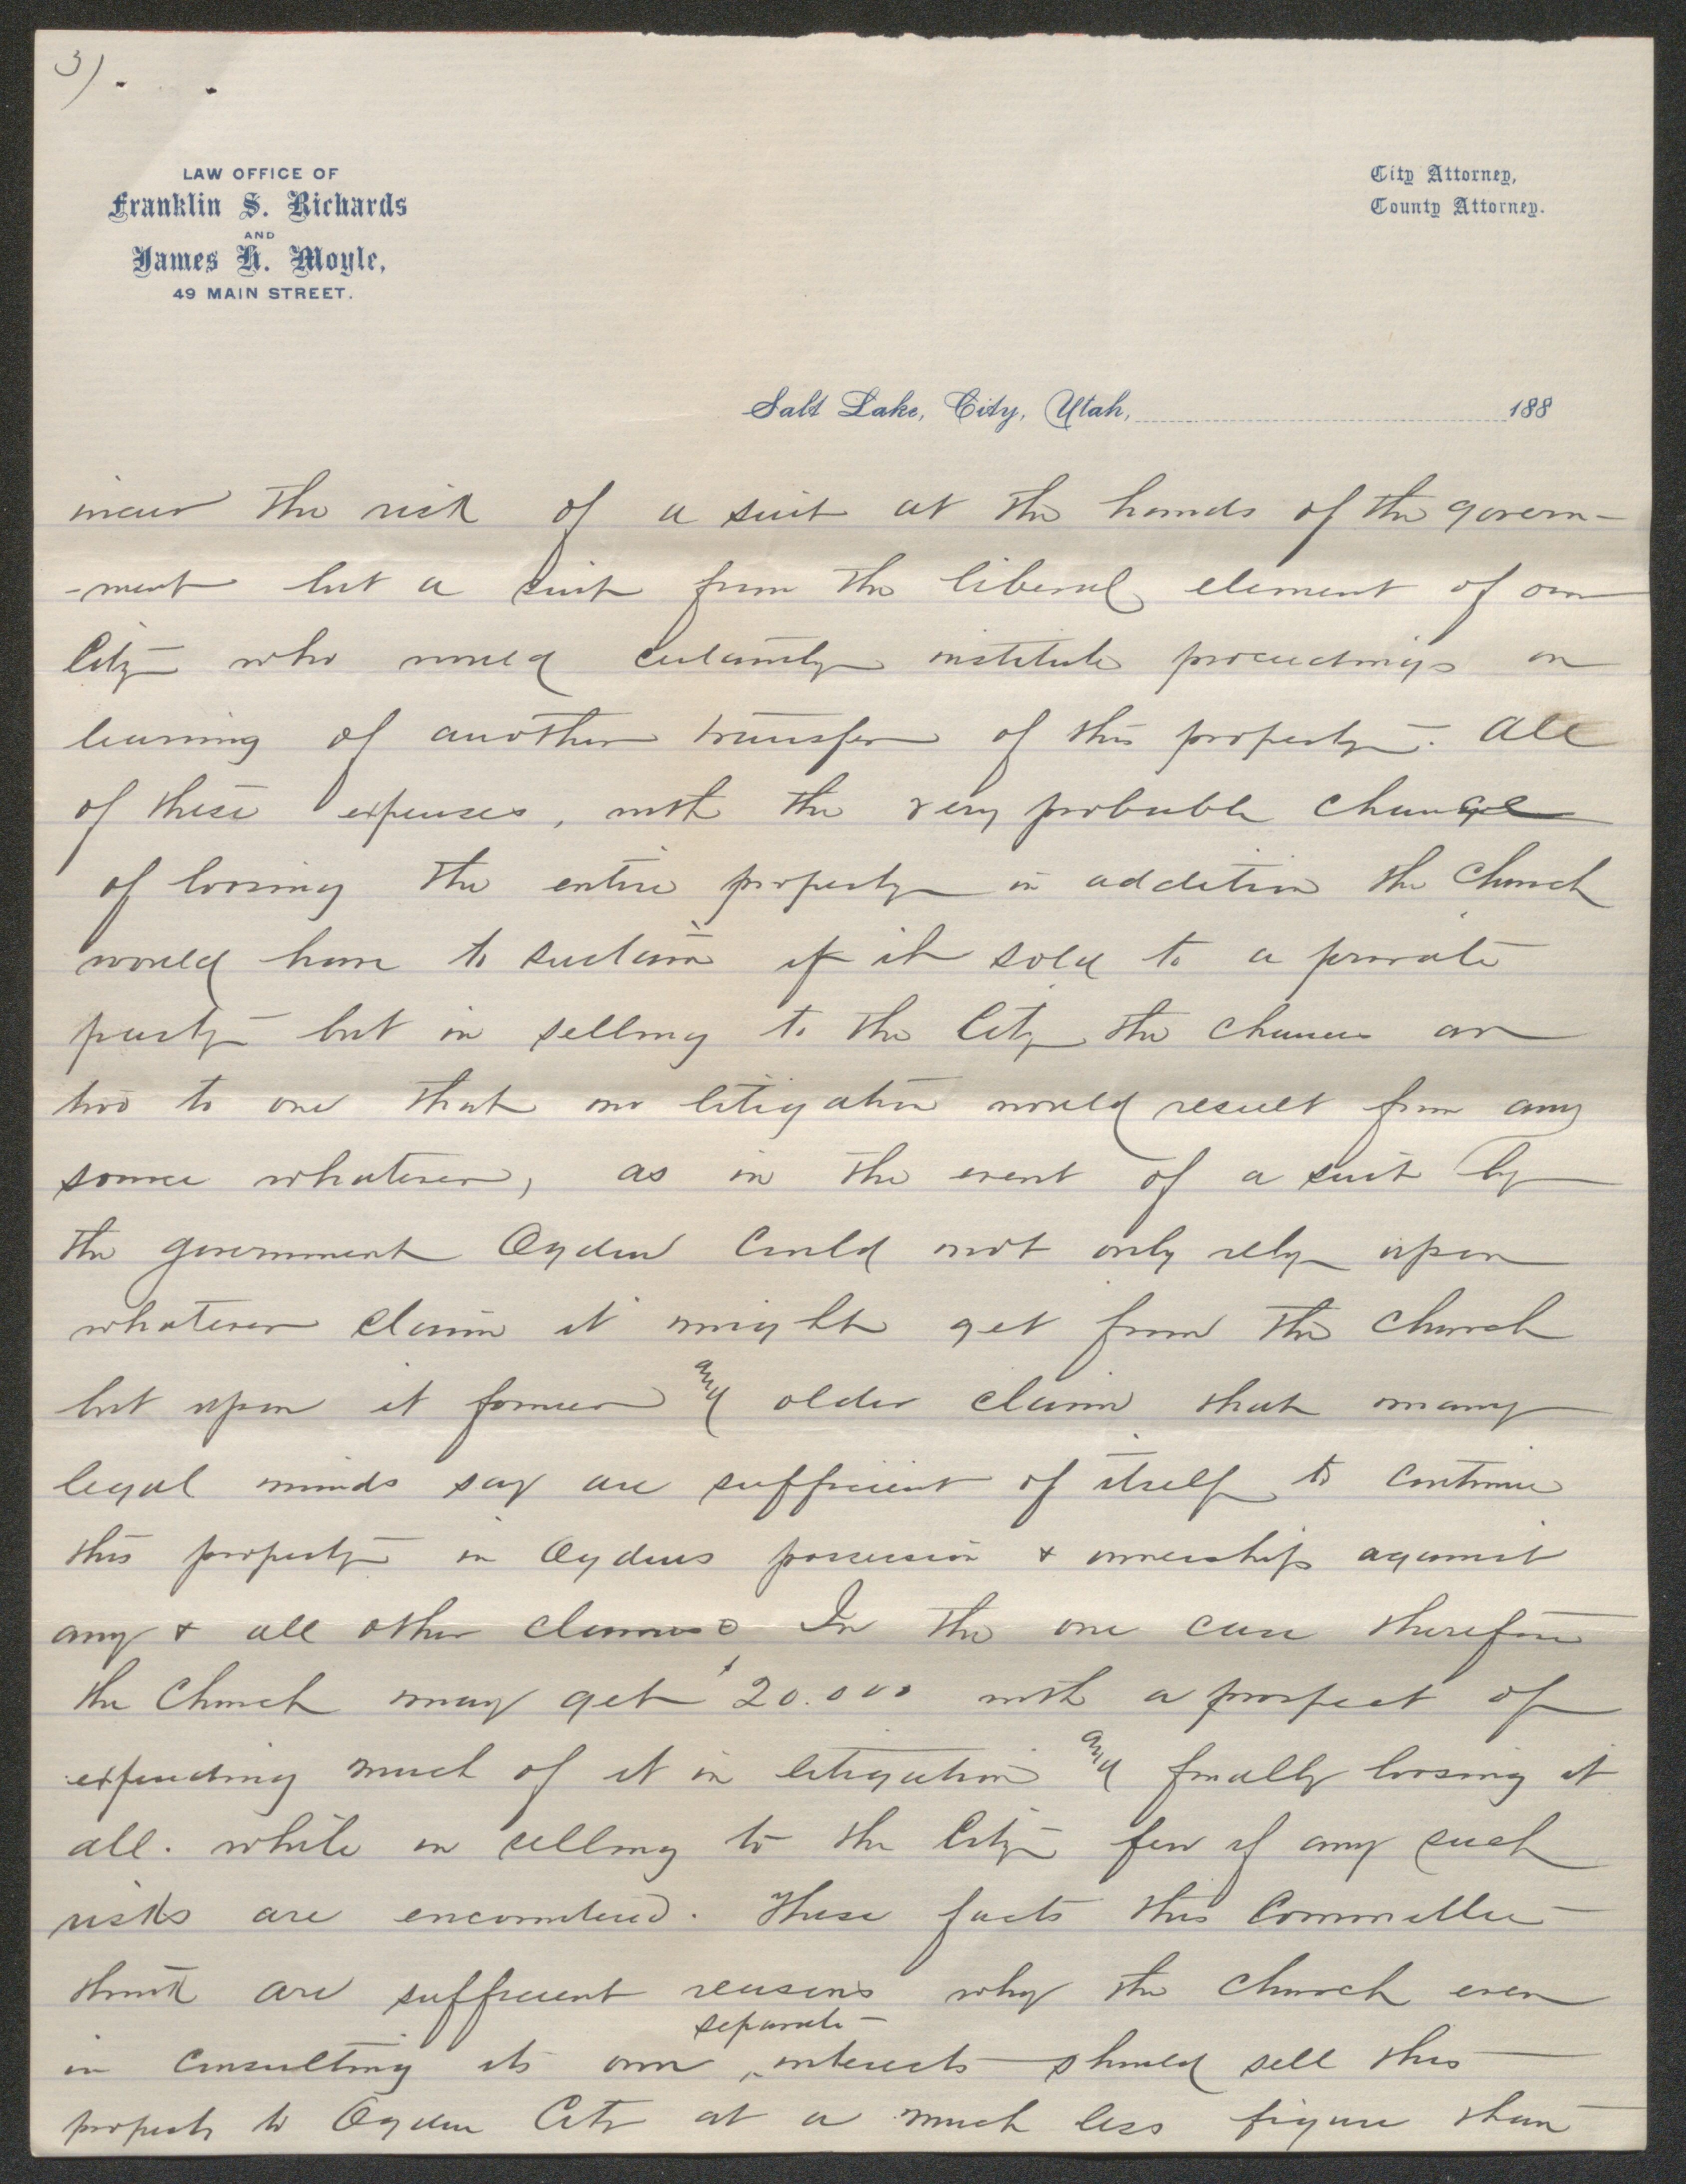 3)
LAW OFFICE OF
Franklin S. Richards
AND
James H. Moyle,
49 MAIN STREET.
City Attorney,
County Attorney.
Salt Lake, City, Utah, 188
incur the risk of a suit at the hands of the govern-
-ment but a suit from the liberal element of our
City who would certainly institute proceedings on
learning of another transfer of this property. All
of these expenses, with the very probable chance
of loosing the entire property in addition the Church
would have to sustain if it sold to a private
party but in selling to the City the chances are
two to one that no litigation would result from any
source whatever, as in the event of a suit by
the government Ogden could not only rely upon
whatever claim it might get from the church
but upon it former and older claim that many
legal minds say are sufficient of itself to continue
this property in Ogdens possession & ownership against
any & all other claims. In the one case therefore
the Church may get $20.000 with a prospect of
expending much of it in litigation and finally loosing it
all. while in selling to the City few if any such
risks are encountered. These facts this Committee
think are sufficient reasons why the church even
in consulting its own separate interests should sell this
property to Ogden City at a much less figure than